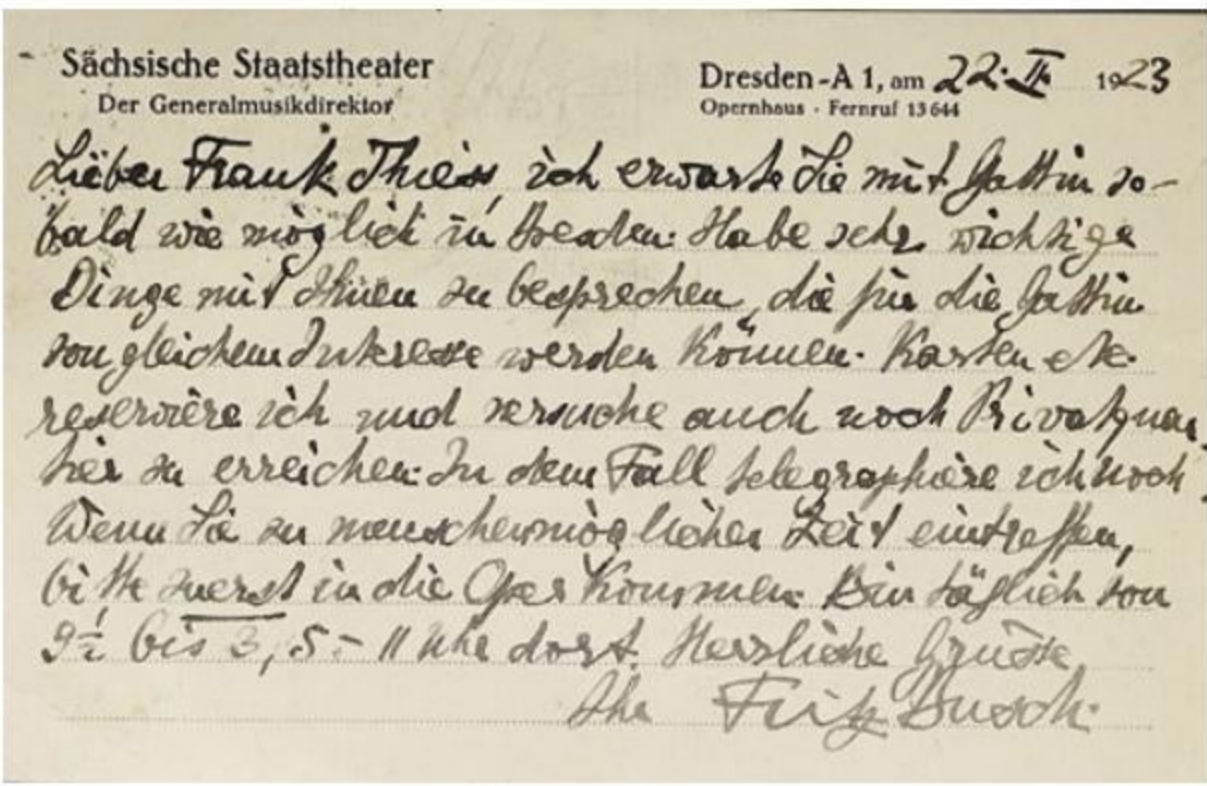 Sächsische Staatstheater
Der Generalmusikdirektor
Dresden-A 1, am 22. II. 1923
Opernhaus · Fernruf 13 644
Lieber Frank Thiess, ich erwarte Sie mit Gattin so-
bald wie möglich in Dresden. Habe sehr wichtige
Dinge mit Ihnen zu besprechen, die für die Gattin
von gleichem Interesse werden können. Karten etc.
reserviere ich und versuche auch noch Privatquar-
tier zu erreichen. In dem Fall telegraphiere ich noch.
Wenn Sie zu menschenmöglicher Zeit eintreffen,
bitte zuerst in die Oper kommen. Bin täglich von
9½ bis 3, 5 - 11 Uhr dort. Herzliche Grüsse
Ihr Fritz Busch.